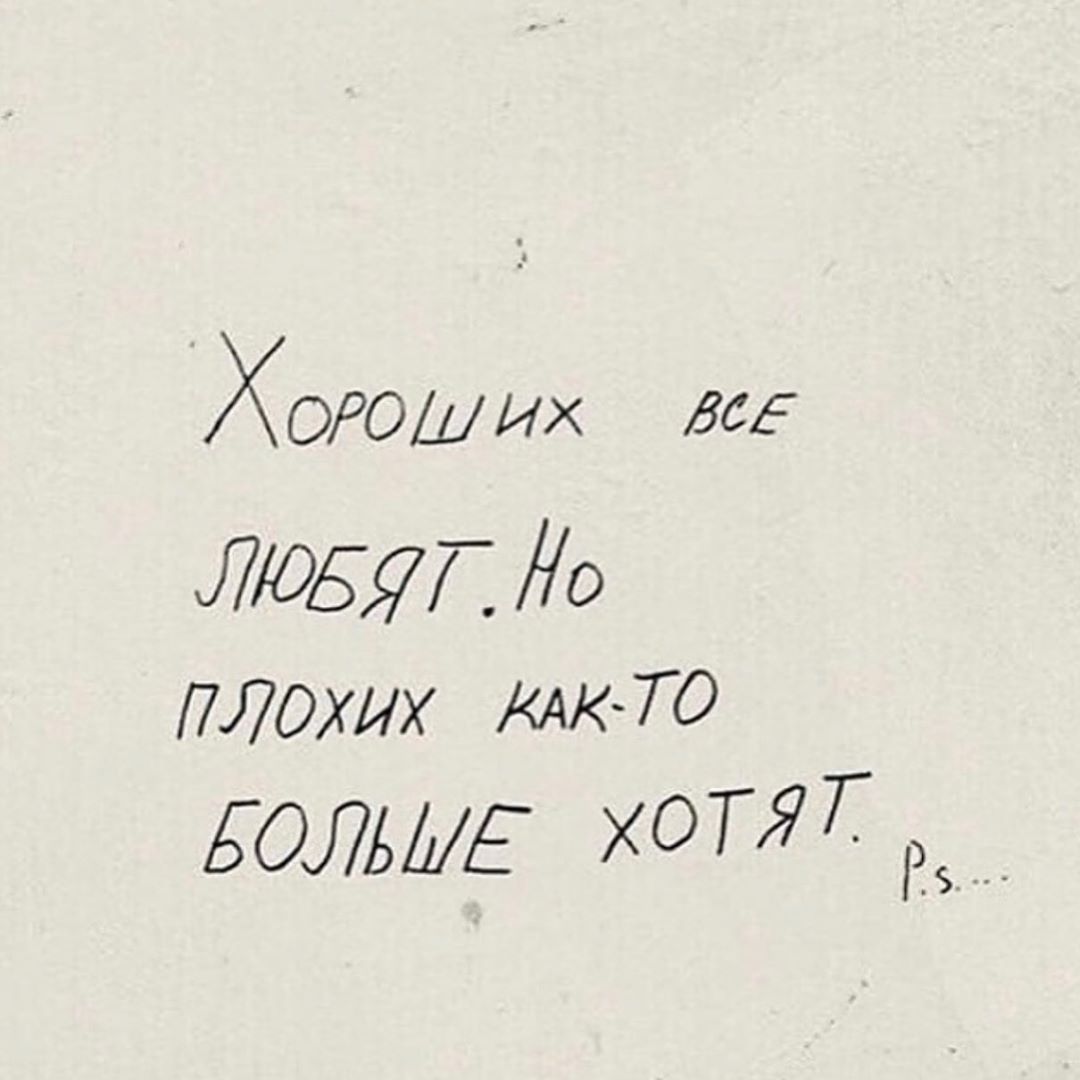 Хороших все
любят. Но
плохих как-то
больше хотят.
P.s....